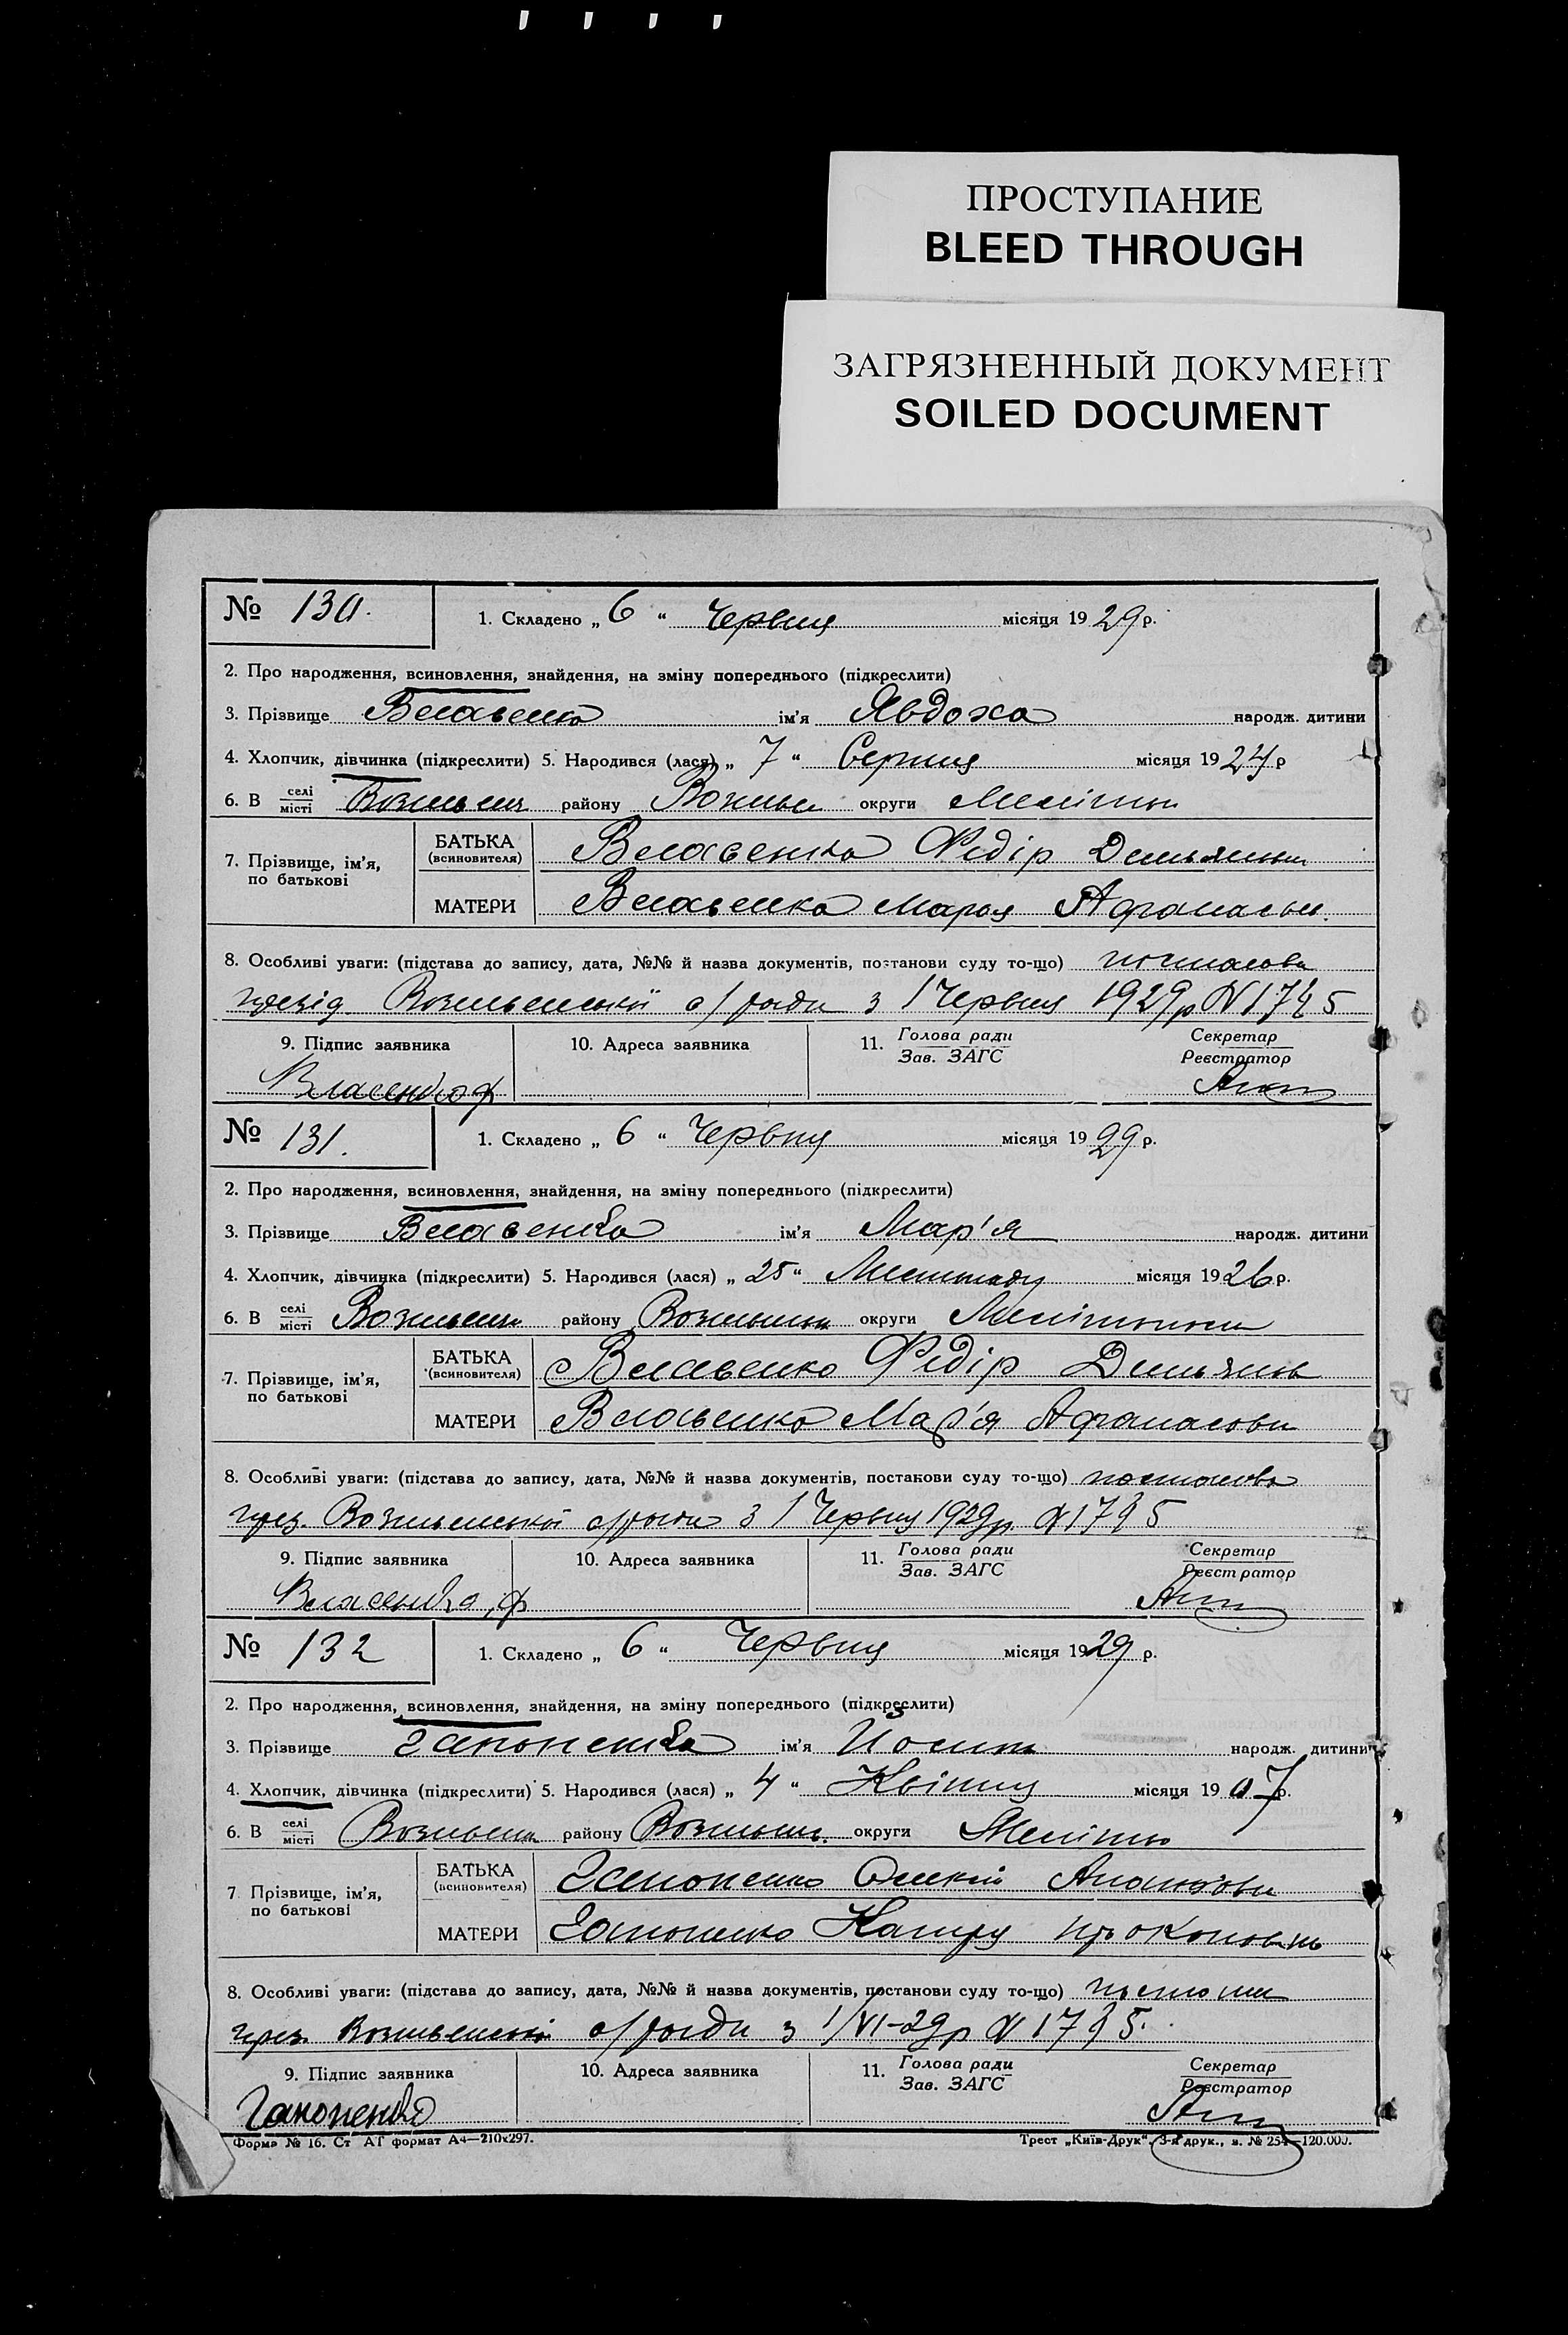 ПРОСТУПАНИЕ
BLEED THROUGH
ЗАГРЯЗНЕННЫЙ ДОКУМЕНТ
SOILED DOCUMENT
№ 130. 1. Складено „ 6 “ Червня місяця 19 29 р.
2. Про народження, всиновлення, знайдення, на зміну попереднього (підкреслити)
3. Прізвище Власенко ім'я Явдоха народж. дитини
4. Хлопчик, дівчинка (підкреслити) 5. Народився (лася) „ 7 “ Серпня місяця 19 24 р
6. В селі місті району округи
7. Прізвище, ім'я, по батькові
БАТЬКА (всиновителя) Власенко Федір
МАТЕРИ Власенко Марья
8. Особливі уваги: (підстава до запису, дата, №№ й назва документів, постанови суду то-що) постанова
с/ради з 1 Червня 1929р N
9. Підпис заявника 10. Адреса заявника 11. Голова ради Зав. ЗАГС Секретар Реєстратор
Власенко Ф
№ 131. 1. Складено „ 6 “ Червня місяця 19 29 р.
2. Про народження, всиновлення, знайдення, на зміну попереднього (підкреслити)
3. Прізвище Власенко ім'я Мар'я народж. дитини
4. Хлопчик, дівчинка (підкреслити) 5. Народився (лася) „ 25 “ місяця 19 26 р.
6. В селі місті району округи
7. Прізвище, ім'я, по батькові
БАТЬКА (всиновителя) Власенко Федір
МАТЕРИ Власенко Мар'я
8. Особливі уваги: (підстава до запису, дата, №№ й назва документів, постанови суду то-що) постанова
през. с/ради з 1 Червня 1929р. N
9. Підпис заявника 10. Адреса заявника 11. Голова ради Зав. ЗАГС Секретар Реєстратор
Власенко, Ф
№ 132 1. Складено „ 6 “ Червня місяця 19 29 р.
2. Про народження, всиновлення, знайдення, на зміну попереднього (підкреслити)
3. Прізвище Гапоненко ім'я народж. дитини
4. Хлопчик, дівчинка (підкреслити) 5. Народився (лася) „ 4 “ Квітня місяця 19 07 р.
6. В селі місті району округи
7. Прізвище, ім'я, по батькові
БАТЬКА (всиновителя) Гапоненко
МАТЕРИ Гапоненко
8. Особливі уваги: (підстава до запису, дата, №№ й назва документів, постанови суду то-що)
през. с/ради з 1/VI-29р N
9. Підпис заявника 10. Адреса заявника 11. Голова ради Зав. ЗАГС Секретар Реєстратор
Гапоненко
Форма № 16. Ст АГ формат А4—210х297. Трест „Київ-Друк“. 3-я друк., з. № 254—120.000.